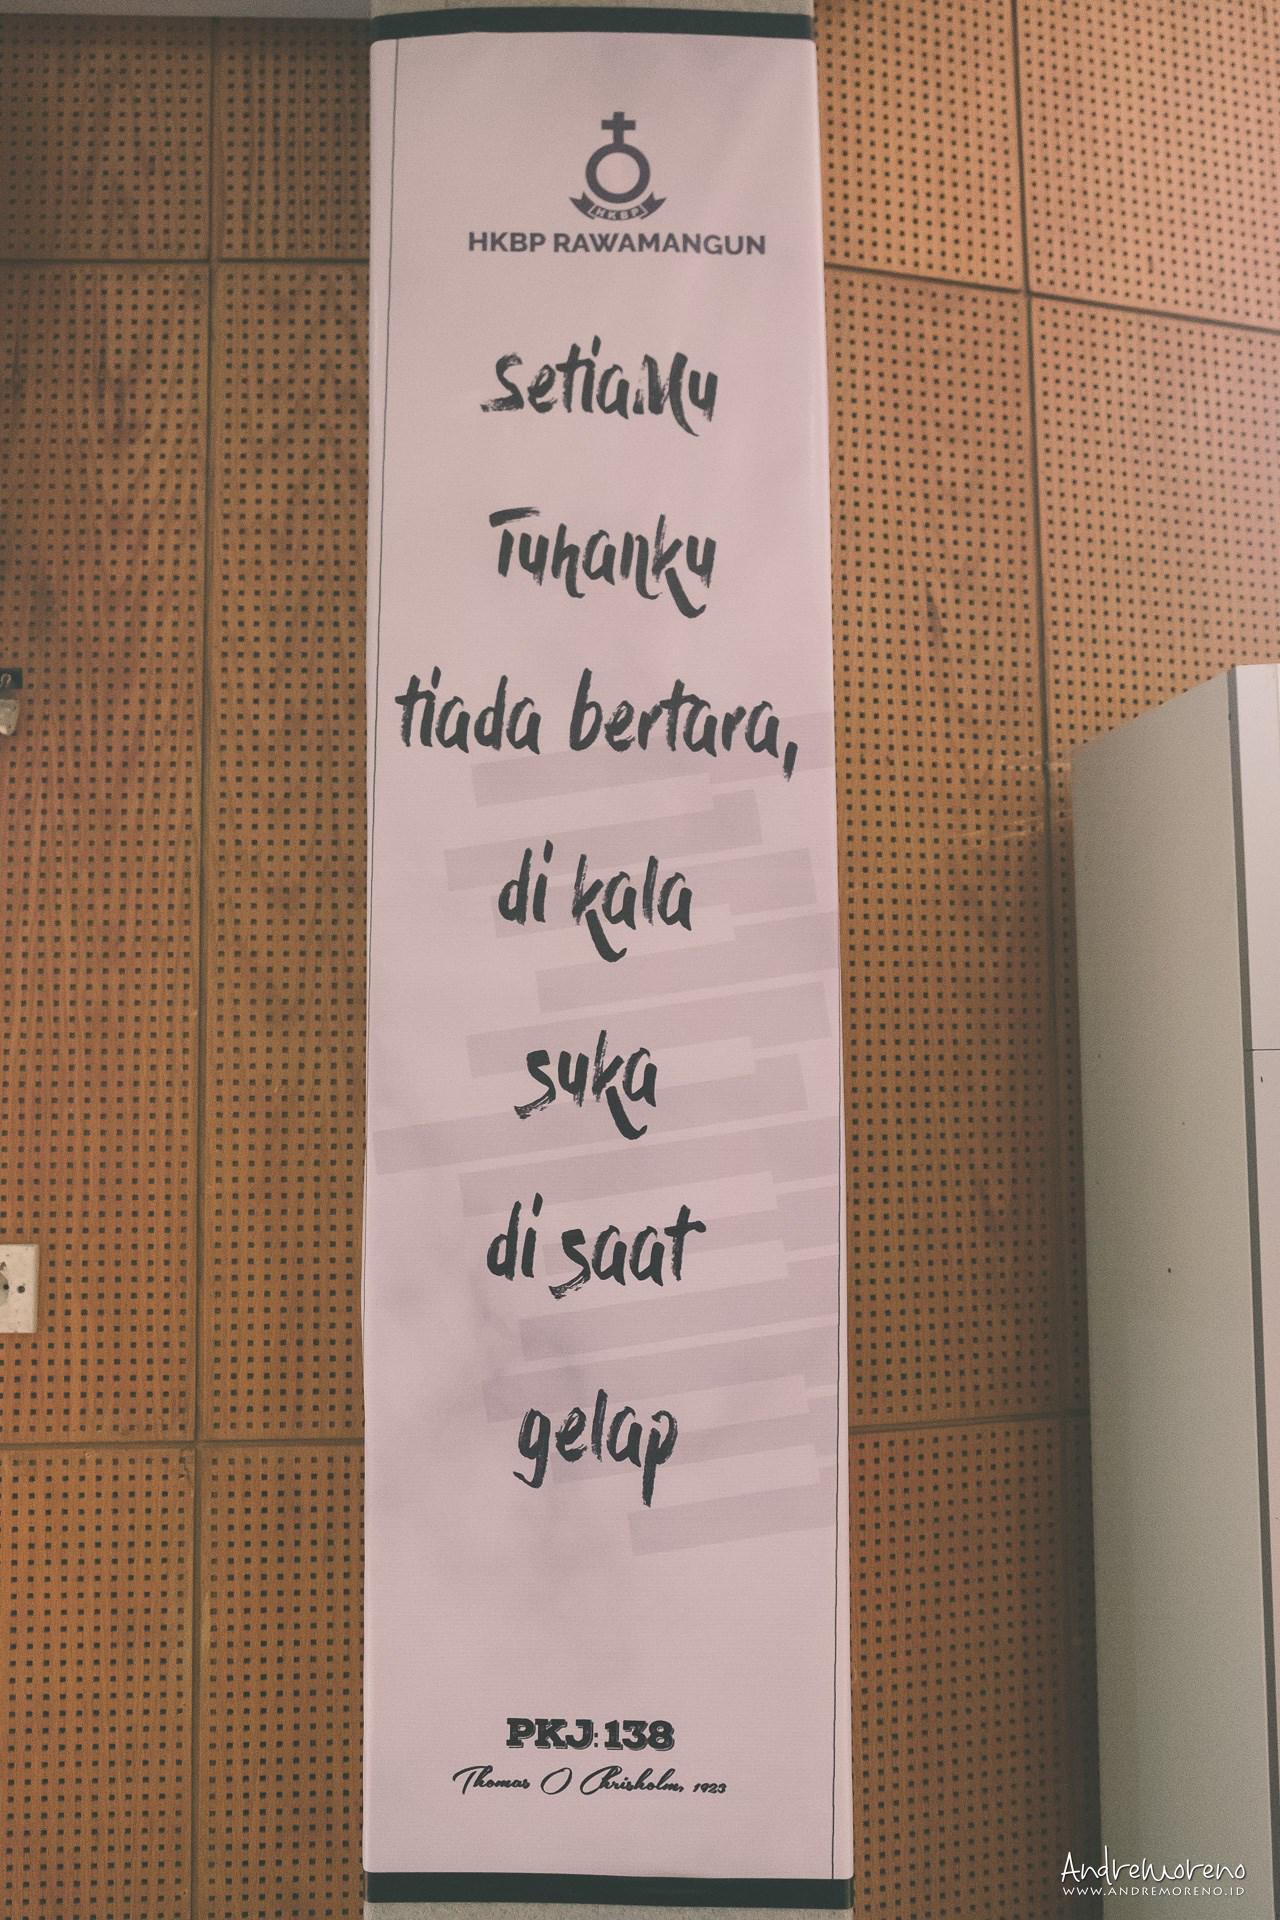 HKBP
HKBP RAWAMANGUN
SetiaMu
Tuhanku
tiada bertara,
di kala
suka
di saat
gelap
PKJ: 138
Thomas O Chrisholm, 1923
AndreMoreno
WWW.ANDREMORENO.ID